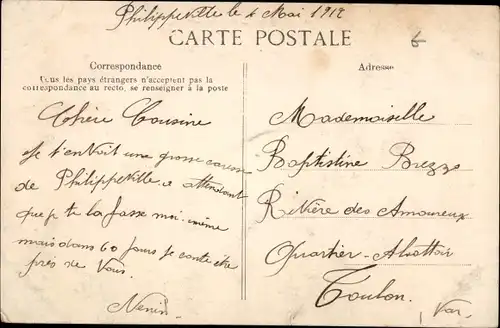 Philippeville le 4 Mai 1912
CARTE POSTALE
Correspondance
Tous les pays étrangers n'acceptent pas la
correspondance au recto, se renseigner à la poste
Chère Cousine
Je t'envoit une grosse caresse
de Philippeville e attendant
que je te la fasse moi-même
mais dans 60 jours je conte etre
près de Vous.
Nenin
6
Adresse
Mademoiselle
Baptistine Brezzo
Rivière des Amoureux
Quartier-Abattoir
Toulon.
Var.